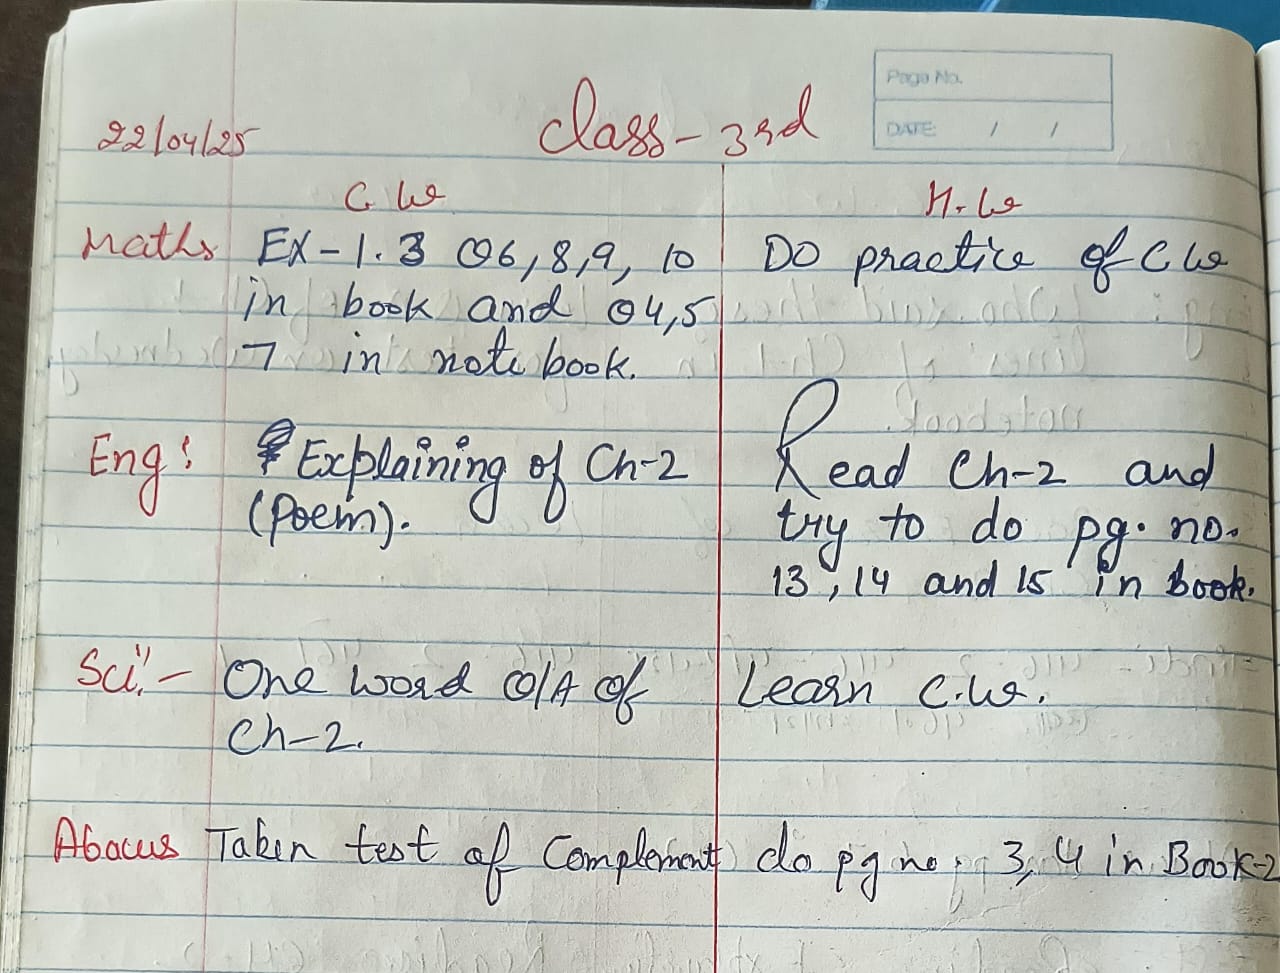 Page No.
DATE: / /
22/04/25
Class - 3rd
C. W
H. W
Maths EX-1.3 Q6,8,9, 10 Do practice of C W
in book and Q4,5
7 in note book.
Eng: Explaining of Ch-2 Read Ch-2 and
(Poem). try to do pg. no.
13, 14 and 15 in book.
Sci:- One word Q/A of Learn C.W.
Ch-2.
Abacus Taken test of Complement do pg no. 3, 4 in Book-2